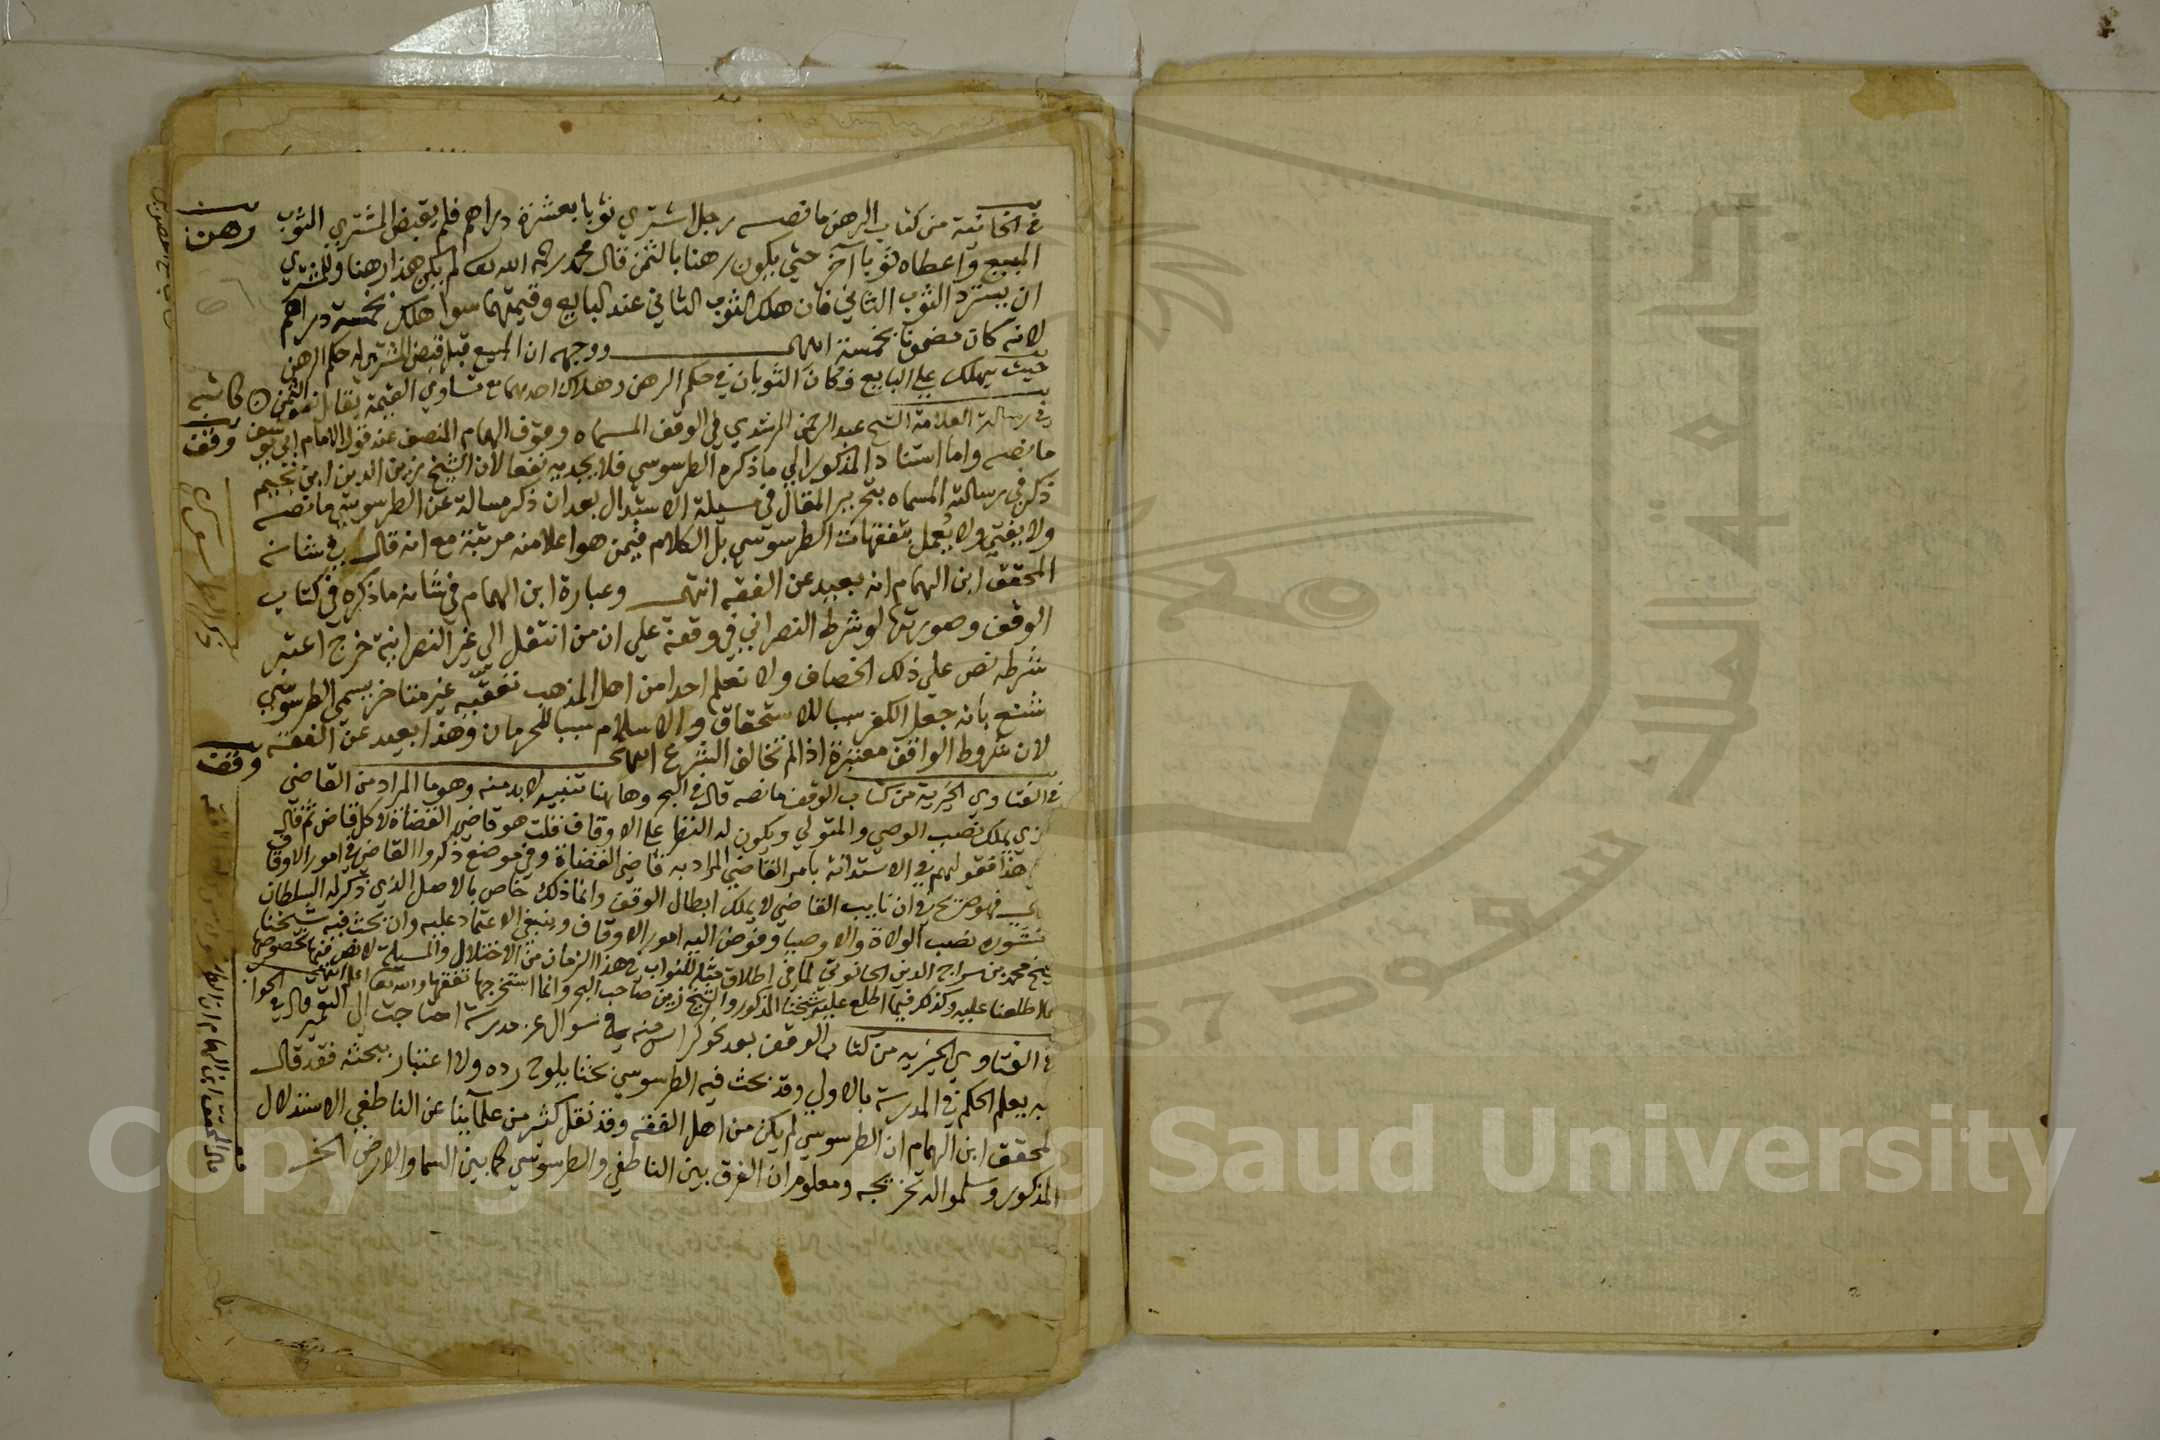 في الخانية من كتاب الرهن ما نصه رجل اشترى ثوبا بعشرة دراهم فلم يقبض المشتري الثوب
رهن
المبيع واعطاه ثوبا آخر حتي يكون رهنا بالثمن قال محمد رحمه الله تعـ لم يكن هذا رهنا وللمشتري
ان يسترد الثوب الثاني فان هلك الثوب الثاني عند البايع وقيمتهما سوا هلك بخمسة دراهم
لانه كان مضمونا بخمسة انتهى ووجهه ان المبيع قبل قبض المشتري له حكم الرهن
حيث يهلك علي البايع فكان الثوبان في حكم الرهن وهلاك احدهما مع تساوي القيمة يقابل نصف الثمن
كاتبه
في رسالة العلامة الشيخ عبد الرحمن المرشدي في الوقف المسماه وقوف الهمام المنصف عند قول الامام ابي يوسف
وقف
ما نصه واما استناد المذكور الي ما ذكره الطرسوسي فلا يجديه نفعا لان الشيخ زين الدين ابن نجيم
ذكر في رسالته المسماه بتحرير المقال في مسيلة الاستبدال بعد ان ذكر مسالة عن الطرسوسي ما نصه
ولا يفتي ولا يعمل بتفقهات الطرسوسي بل الكلام فيمن هو اعلا منه مرتبة مع انه قال في شانه
المحقق ابن الهمام انه بعيد عن الفقه انتهى وعبارة ابن الهمام في شانه ما ذكره في كتاب
الوقف وصورتها لو شرط النصراني في وقفه علي ان من انتقل الي غير النصرانية خرج اعتبر
شرطه نص علي ذلك الخصاف ولا نعلم احدا من اهل المذهب تعقبه غير متاخر يسمى الطرسوسي
شنع بانه جعل الكفر سببا للاستحقاق والاسلام سببا للحرمان وهذا بعيد عن الفقه
لان شروط الواقف معتبرة اذا لم تخالف الشرع انتهى
وقف
في الفتاوي الخيرية من كتاب الوقف ما نصه قال في البحر وهاهنا تنبيه لا بد منه وهو ما المراد من القاضي
الذي يملك نصب الوصي والمتولي ويكون له النظر علي الاوقاف قلت هو قاضي القضاة لا كل قاض ثم قال
هذا فقولهم في الاستدانة بامر القاضي المراد به قاضي القضاة وفي موضع ذكروا القاضي في امور الاوقاف
فهو صريح في ان نايب القاضي لا يملك ابطال الوقف وانما ذلك خاص بالاصل الذي ذكر له السلطان
منشوره نصب الولاة والاوصيا وفوض اليه امور الاوقاف وينبغي الاعتماد عليه وان بحث فيه شيخنا
الشيخ محمد بن سراج الدين الحانوتي لما في اطلاق مثله للنواب في هذا الزمان من الاختلال والمسيلة لا نص فيها بخصوصها
اطلعنا عليه وكذلك فيما اطلع عليه شيخنا المذكور والشيخ زين صاحب البحر وانما استخرجها تفقها والله تعا اعلم انتهى
في الفتاوي الخيريه من كتاب الوقف بعد نحو كراس منه في سوال عن مدرسة احتاجت الي التعمير وقال في الجواب
به يعلم الحكم في المدرسة بالاولي وقد بحث فيه الطرسوسي بحثا يلوح رده ولا اعتبار ببحثه فقد قال
المحقق ابن الهمام ان الطرسوسي لم يكن من اهل الفقه وقد نقل كثير من علمآينا عن الناطفي الاستدلال
المذكور وسلموا له تخريجه ومعلوم ان الفرق بين الناطفي والطرسوسي كما بين السما والارض الخ
Copyright © King Saud University
جامعة الملك سعود
1957